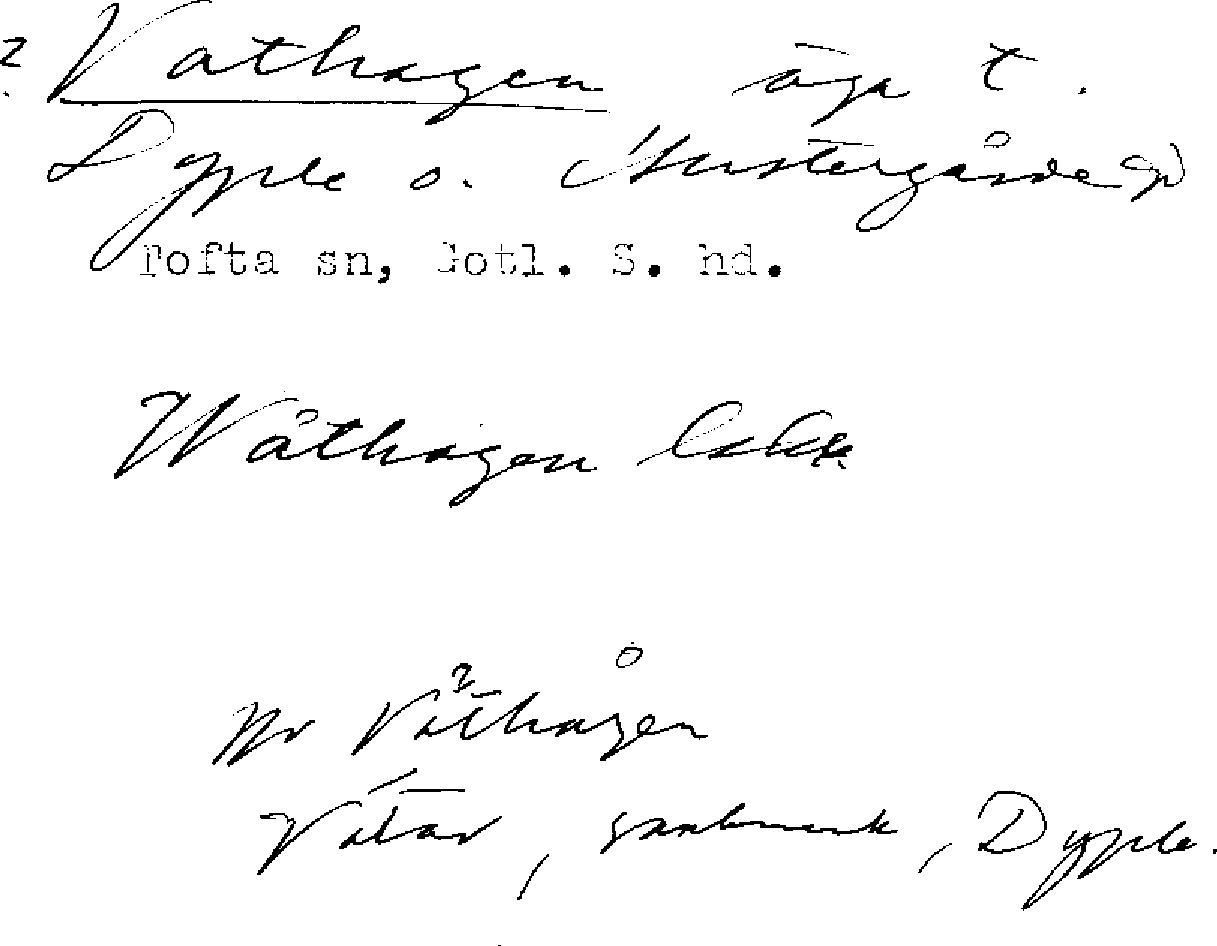 ? Vathagen äga t.
Dypple o. Mustergårde
Tofta sn, Gotl. S. hd.
Wåthagen
nr Våthågen
Dypple.